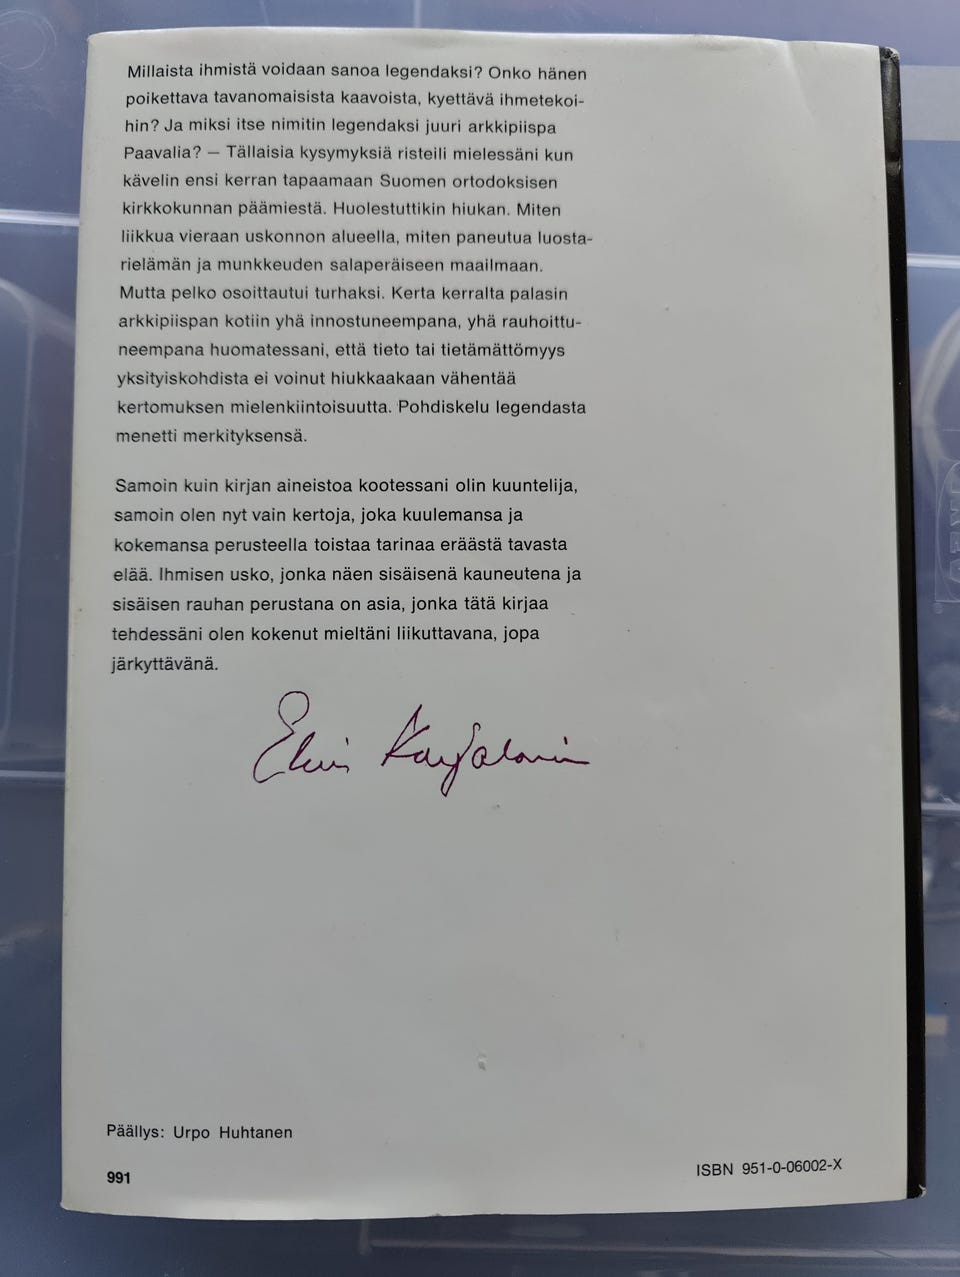 Millaista ihmistä voidaan sanoa legendaksi? Onko hänen
poikettava tavanomaisista kaavoista, kyettävä ihmetekoi-
hin? Ja miksi itse nimitin legendaksi juuri arkkipiispa
Paavalia? — Tällaisia kysymyksiä risteili mielessäni kun
kävelin ensi kerran tapaamaan Suomen ortodoksisen
kirkkokunnan päämiestä. Huolestuttikin hiukan. Miten
liikkua vieraan uskonnon alueella, miten paneutua luosta-
rielämän ja munkkeuden salaperäiseen maailmaan.
Mutta pelko osoittautui turhaksi. Kerta kerralta palasin
arkkipiispan kotiin yhä innostuneempana, yhä rauhoittu-
neempana huomatessani, että tieto tai tietämättömyys
yksityiskohdista ei voinut hiukkaakaan vähentää
kertomuksen mielenkiintoisuutta. Pohdiskelu legendasta
menetti merkityksensä.
Samoin kuin kirjan aineistoa kootessani olin kuuntelija,
samoin olen nyt vain kertoja, joka kuulemansa ja
kokemansa perusteella toistaa tarinaa eräästä tavasta
elää. Ihmisen usko, jonka näen sisäisenä kauneutena ja
sisäisen rauhan perustana on asia, jonka tätä kirjaa
tehdessäni olen kokenut mieltäni liikuttavana, jopa
järkyttävänä.
Karjalainen
Päällys: Urpo Huhtanen
991
ISBN 951-0-06002-X